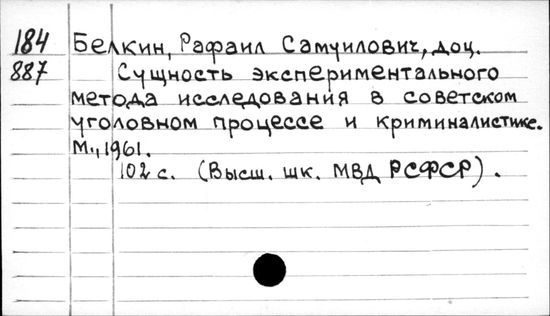 184 Белкин, Рафаил Самуилович, доц.
887 Сущность экспериментального
метода исследования в советском
уголовном процессе и криминалистике.
М., 1961.
102 с. (Высш. шк. МВД РСФСР).